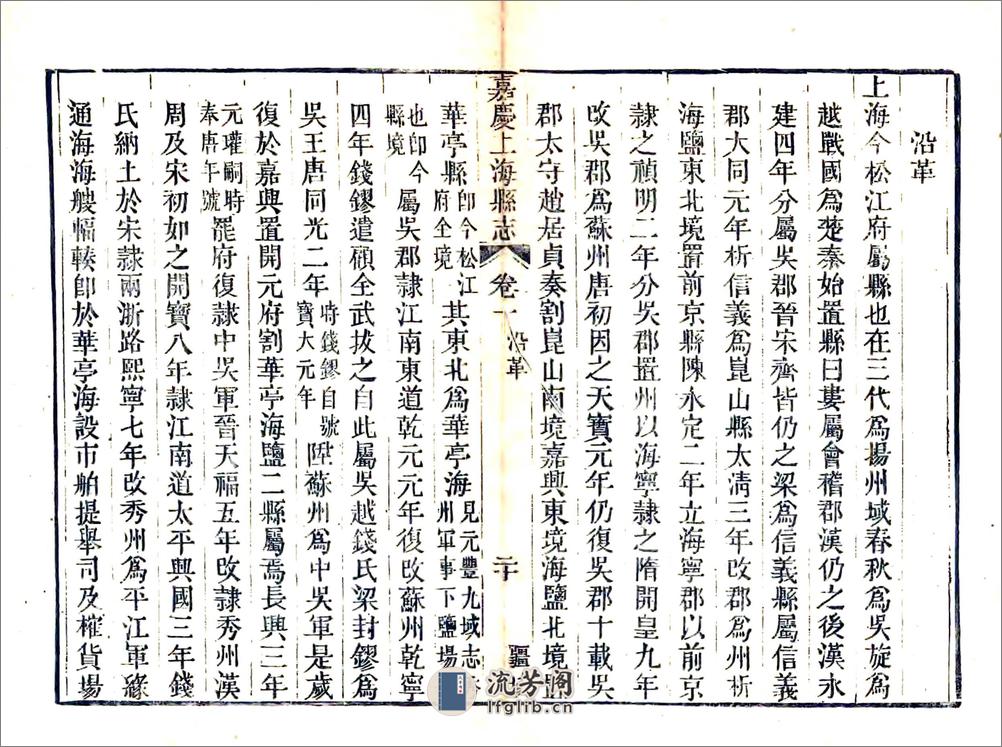 沿革
上海今松江府屬縣也在三代爲揚州域春秋爲吳旋爲
越戰國爲楚秦始置縣曰婁屬會稽郡漢仍之後漢永
建四年分屬吳郡晉宋齊皆仍之梁爲信義縣屬信義
郡大同元年析信義爲崑山縣太淸三年改郡爲州析
海鹽東北境置前京縣陳永定二年立海寧郡以前京
隸之禎明二年分吳郡置州以海寧隸之隋開皇九年
改吳郡爲蘇州唐初因之天寶元年仍復吳郡十載吳
郡太守趙居貞奏割崑山南境嘉興東境海鹽北境置
嘉慶上海縣志 卷一 沿革 二十
華亭縣卽今松江府全境其東北爲華亭海見元豐九域志秀州軍事下鹽場
也卽今縣境屬吳郡隸江南東道乾元元年復改蘇州乾寧
四年錢鏐遣顧全武拔之自此屬吳越錢氏梁封鏐爲
吳王唐同光二年時錢鏐自號寶大元年陞蘇州爲中吳軍是歲
復於嘉興置開元府割華亭海鹽二縣屬焉長興三年
元瓘嗣時奉唐年號罷府復隸中吳軍晉天福五年改隸秀州漢
周及宋初如之開寶八年隸江南道太平興國三年錢
氏納土於宋隸兩浙路熙寧七年改秀州爲平江軍緣
通海海艘輻輳卽於華亭海設市舶提舉司及榷貨場
流芳阁
lfglib.cn